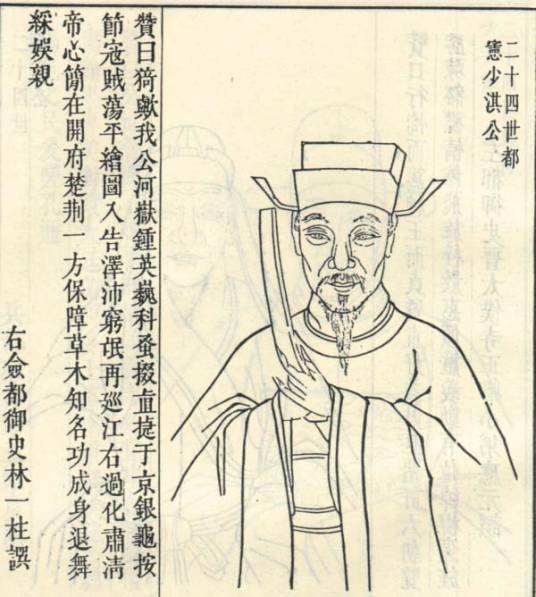 二十四世都
憲少淇公
贊曰猗歟我公河嶽鍾英巍科蚤掇直捷于京銀龜按
節寇賊蕩平繪圖入告澤沛窮氓再廵江右過化肅清
帝心簡在開府楚荆一方保障草木知名功成身退舞
綵娛親
右僉都御史林一柱譔